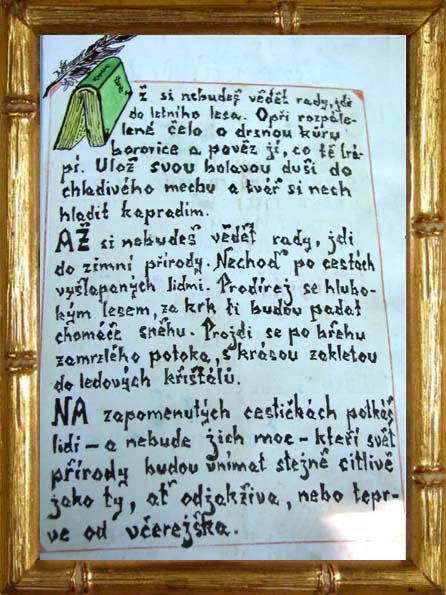 AŽ si nebudeš vědět rady, jdi
do letního lesa. Opři rozpále-
lené čelo o drsnou kůru
borovice a pověz jí, co tě trá-
pí. Ulož svou bolavou duši do
chladivého mechu a tvář si nech
hladit kapradím.
AŽ si nebudeš vědět rady, jdi
do zimní přírody. Nechoď po cestách
vyšlapaných lidmi. Prodírej se hlubo-
kým lesem, za krk ti budou padat
chomáče sněhu. Projdi se po břehu
zamrzlého potoka, s krásou zakletou
do ledových křišťálů.
NA zapomenutých cestičkách potkáš
lidi – a nebude jich moc – kteří svět
přírody budou vnímat stejně citlivě
jako ty, ať odjakživa, nebo tepr-
ve od včerejška.